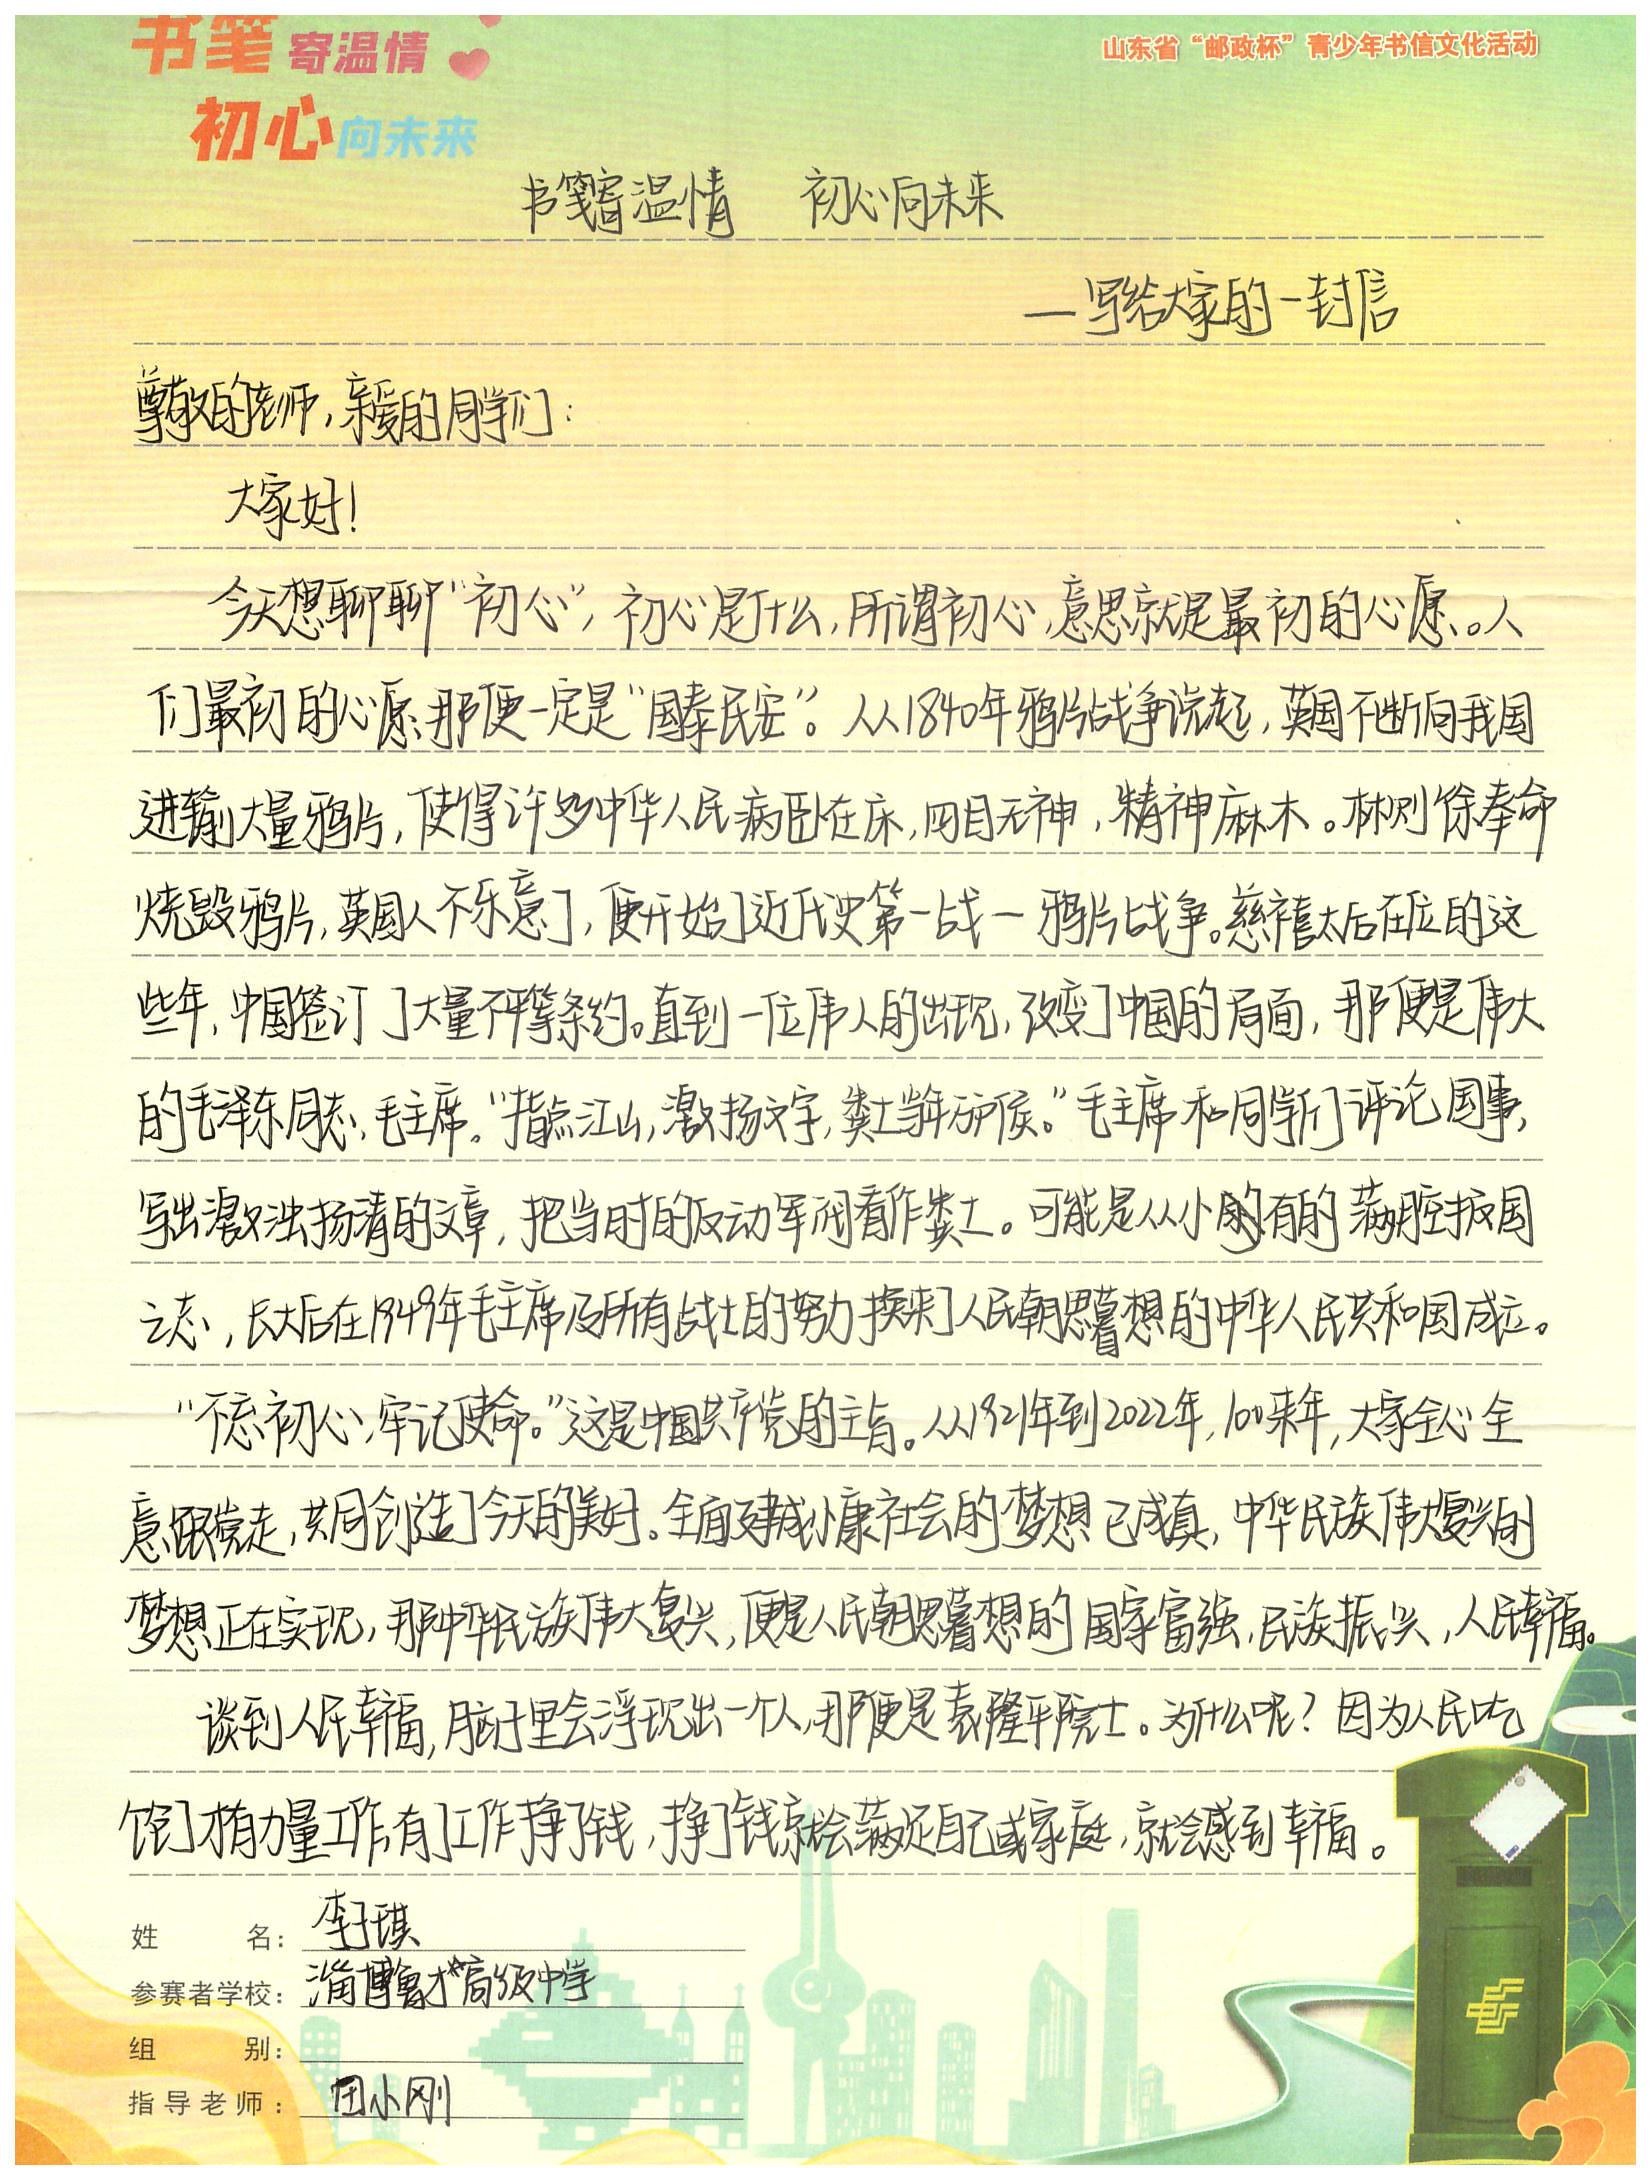 书笔寄温情
初心向未来
山东省“邮政杯”青少年书信文化活动
书笺寄温情 初心向未来
—写给大家的一封信
尊敬的老师，亲爱的同学们：
大家好！
今天想聊聊“初心”，初心是什么，所谓初心，意思就是最初的心愿。人
们最初的心愿，那便一定是“国泰民安”。从1840年鸦片战争说起，英国不断向我国
进输大量鸦片，使得许多中华人民病卧在床，四目无神，精神麻木。林则徐奉命
烧毁鸦片，英国人不乐意了，便开始了近代史第一战—鸦片战争。慈禧太后在位的这
些年，中国签订了大量不平等条约。直到一位伟人的出现，改变了中国的局面，那便是伟大
的毛泽东同志，毛主席。“指点江山，激扬文字，粪土当年万户侯。”毛主席和同学们评论国事，
写出激浊扬清的文章，把当时的反动军阀看作粪土。可能是从小有的满腔报国
之志，长大后在1949年毛主席及所有战士的努力换来了人民朝思暮想的中华人民共和国成立。
“不忘初心，牢记使命。”这是中国共产党的主旨。从1921年到2022年，100来年，大家全心全
意跟党走，共同创造了今天的美好。全面建成小康社会的梦想已成真，中华民族伟大复兴的
梦想正在实现，那中华民族伟大复兴，便是人民朝思暮想的国家富强，民族振兴，人民幸福。
谈到人民幸福，脑子里会浮现出一个人，那便是袁隆平院士。为什么呢？因为人民吃
饱了才有力量工作，有了工作挣了钱，挣了钱就会满足自己或家庭，就会感到幸福。
姓 名：李子琪
参赛者学校：淄博鲁才高级中学
组 别：
指导老师：田小刚